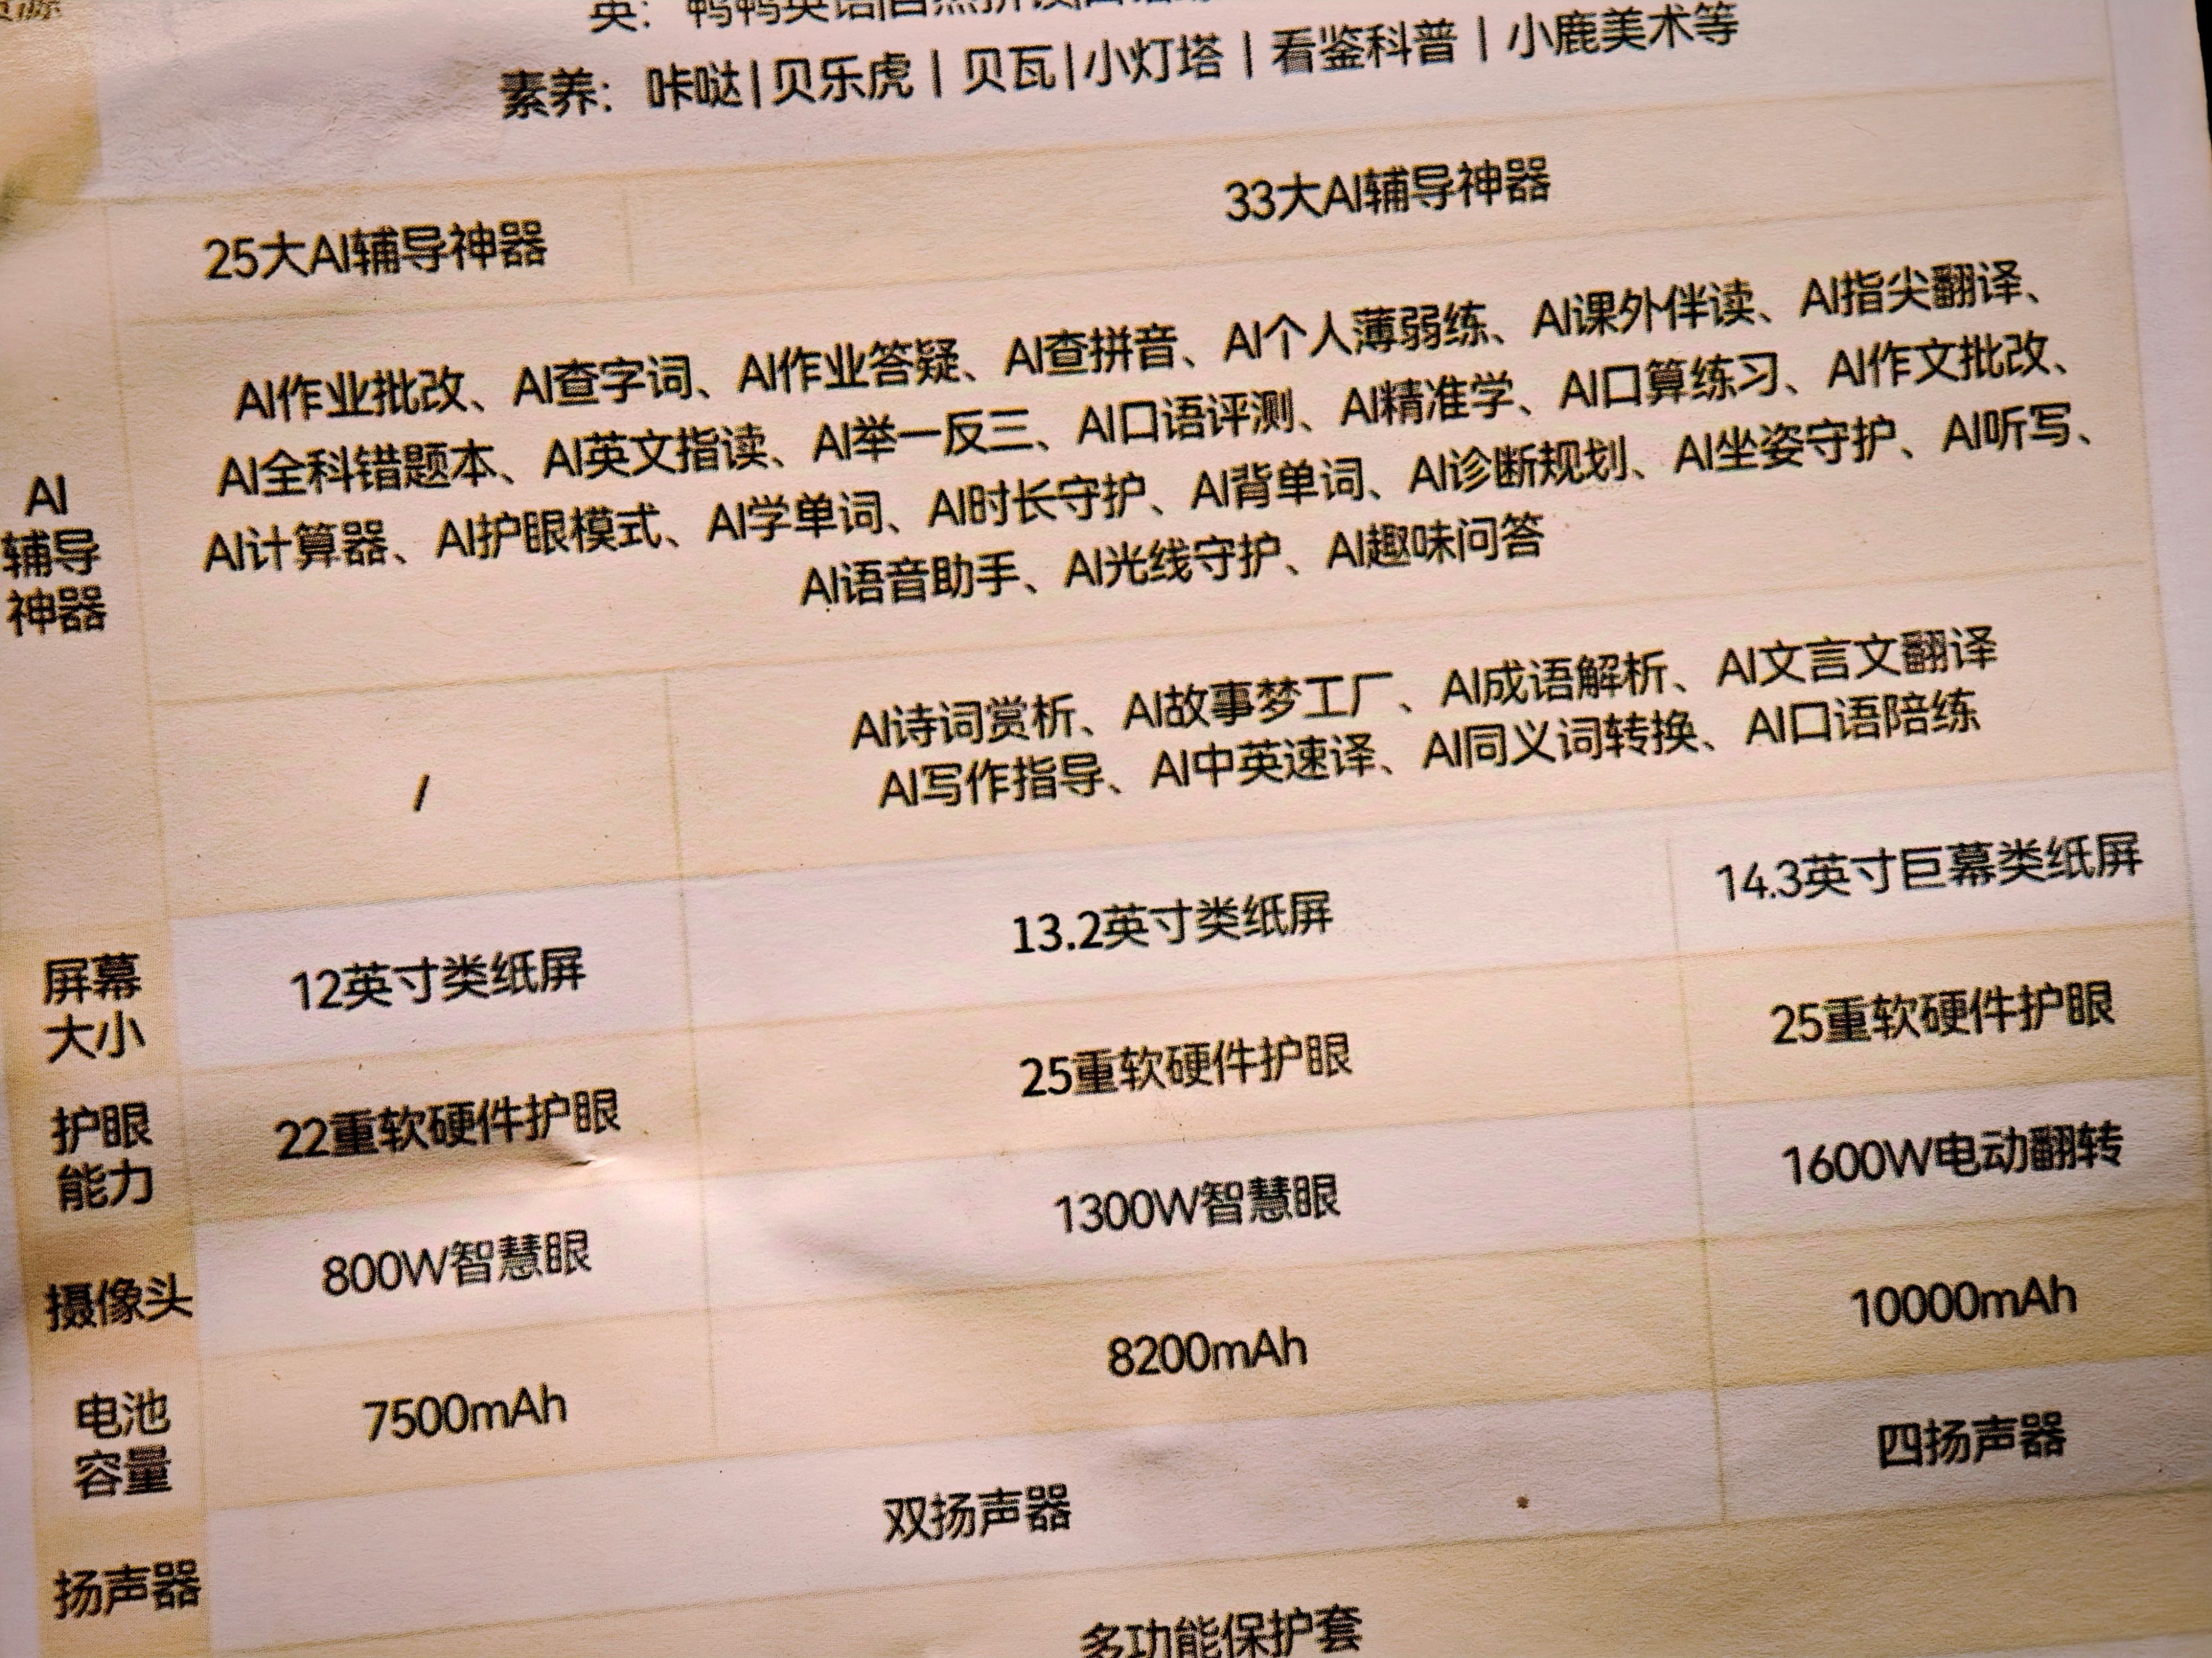 英：鸭鸭英语|自然拼读|
素养：咔哒|贝乐虎|贝瓦|小灯塔|看鉴科普|小鹿美术等
25大AI辅导神器
33大AI辅导神器
AI
辅导
神器
AI作业批改、AI查字词、AI作业答疑、AI查拼音、AI个人薄弱练、AI课外伴读、AI指尖翻译、
AI全科错题本、AI英文指读、AI举一反三、AI口语评测、AI精准学、AI口算练习、AI作文批改、
AI计算器、AI护眼模式、AI学单词、AI时长守护、AI背单词、AI诊断规划、AI坐姿守护、AI听写、
AI语音助手、AI光线守护、AI趣味问答
/
AI诗词赏析、AI故事梦工厂、AI成语解析、AI文言文翻译
AI写作指导、AI中英速译、AI同义词转换、AI口语陪练
屏幕
大小
12英寸类纸屏
13.2英寸类纸屏
14.3英寸巨幕类纸屏
护眼
能力
22重软硬件护眼
25重软硬件护眼
25重软硬件护眼
摄像头
800W智慧眼
1300W智慧眼
1600W电动翻转
电池
容量
7500mAh
8200mAh
10000mAh
扬声器
双扬声器
四扬声器
多功能保护套